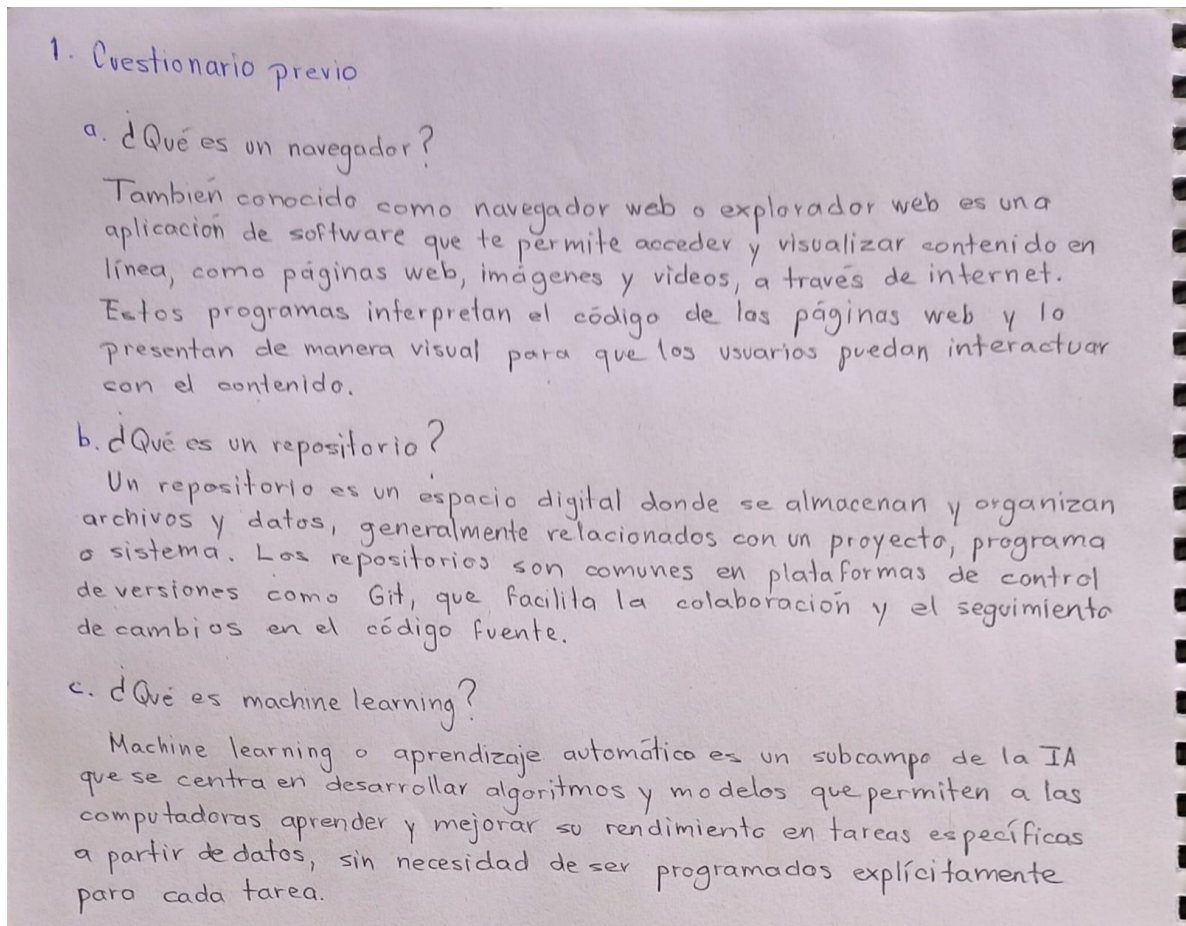 1. Cuestionario previo
a. ¿Qué es un navegador?
Tambien conocido como navegador web o explorador web es una
aplicación de software que te permite acceder y visualizar contenido en
línea, como páginas web, imágenes y videos, a través de internet.
Estos programas interpretan el código de las páginas web y lo
presentan de manera visual para que los usuarios puedan interactuar
con el contenido.
b. ¿Qué es un repositorio?
Un repositorio es un espacio digital donde se almacenan y organizan
archivos y datos, generalmente relacionados con un proyecto, programa
o sistema. Los repositorios son comunes en plataformas de control
de versiones como Git, que facilita la colaboración y el seguimiento
de cambios en el código fuente.
c. ¿Qué es machine learning?
Machine learning o aprendizaje automático es un subcampo de la IA
que se centra en desarrollar algoritmos y modelos que permiten a las
computadoras aprender y mejorar su rendimiento en tareas específicas
a partir de datos, sin necesidad de ser programados explícitamente
para cada tarea.